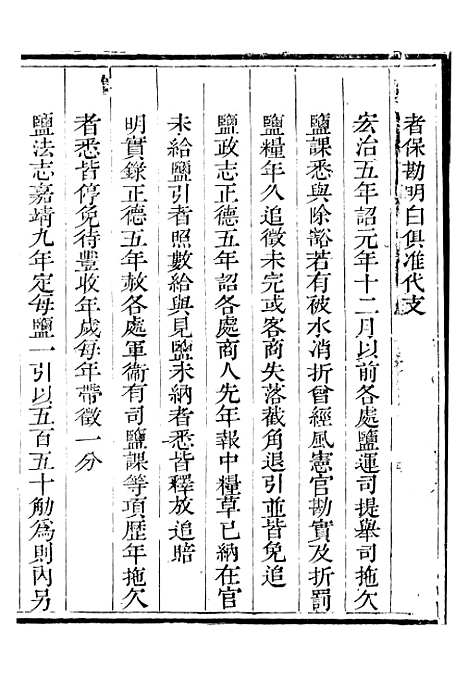 者保勘明白俱准代支
宏治五年詔元年十二月以前各處鹽運司提舉司拖欠
鹽課悉與除豁若有被水消折曾經風憲官勘實及折罰
鹽糧年久追徵未完或客商失落截角退引並皆免追
鹽政志正德五年詔各處商人先年報中糧草已納在官
未給鹽引者照數給與見鹽未納者悉皆釋放追賠
明實錄正德五年赦各處軍衞有司鹽課等項歷年拖欠
者悉皆停免待豐收年歲每年帶徵一分
鹽法志嘉靖九年定每鹽一引以五百五十觔為則內另